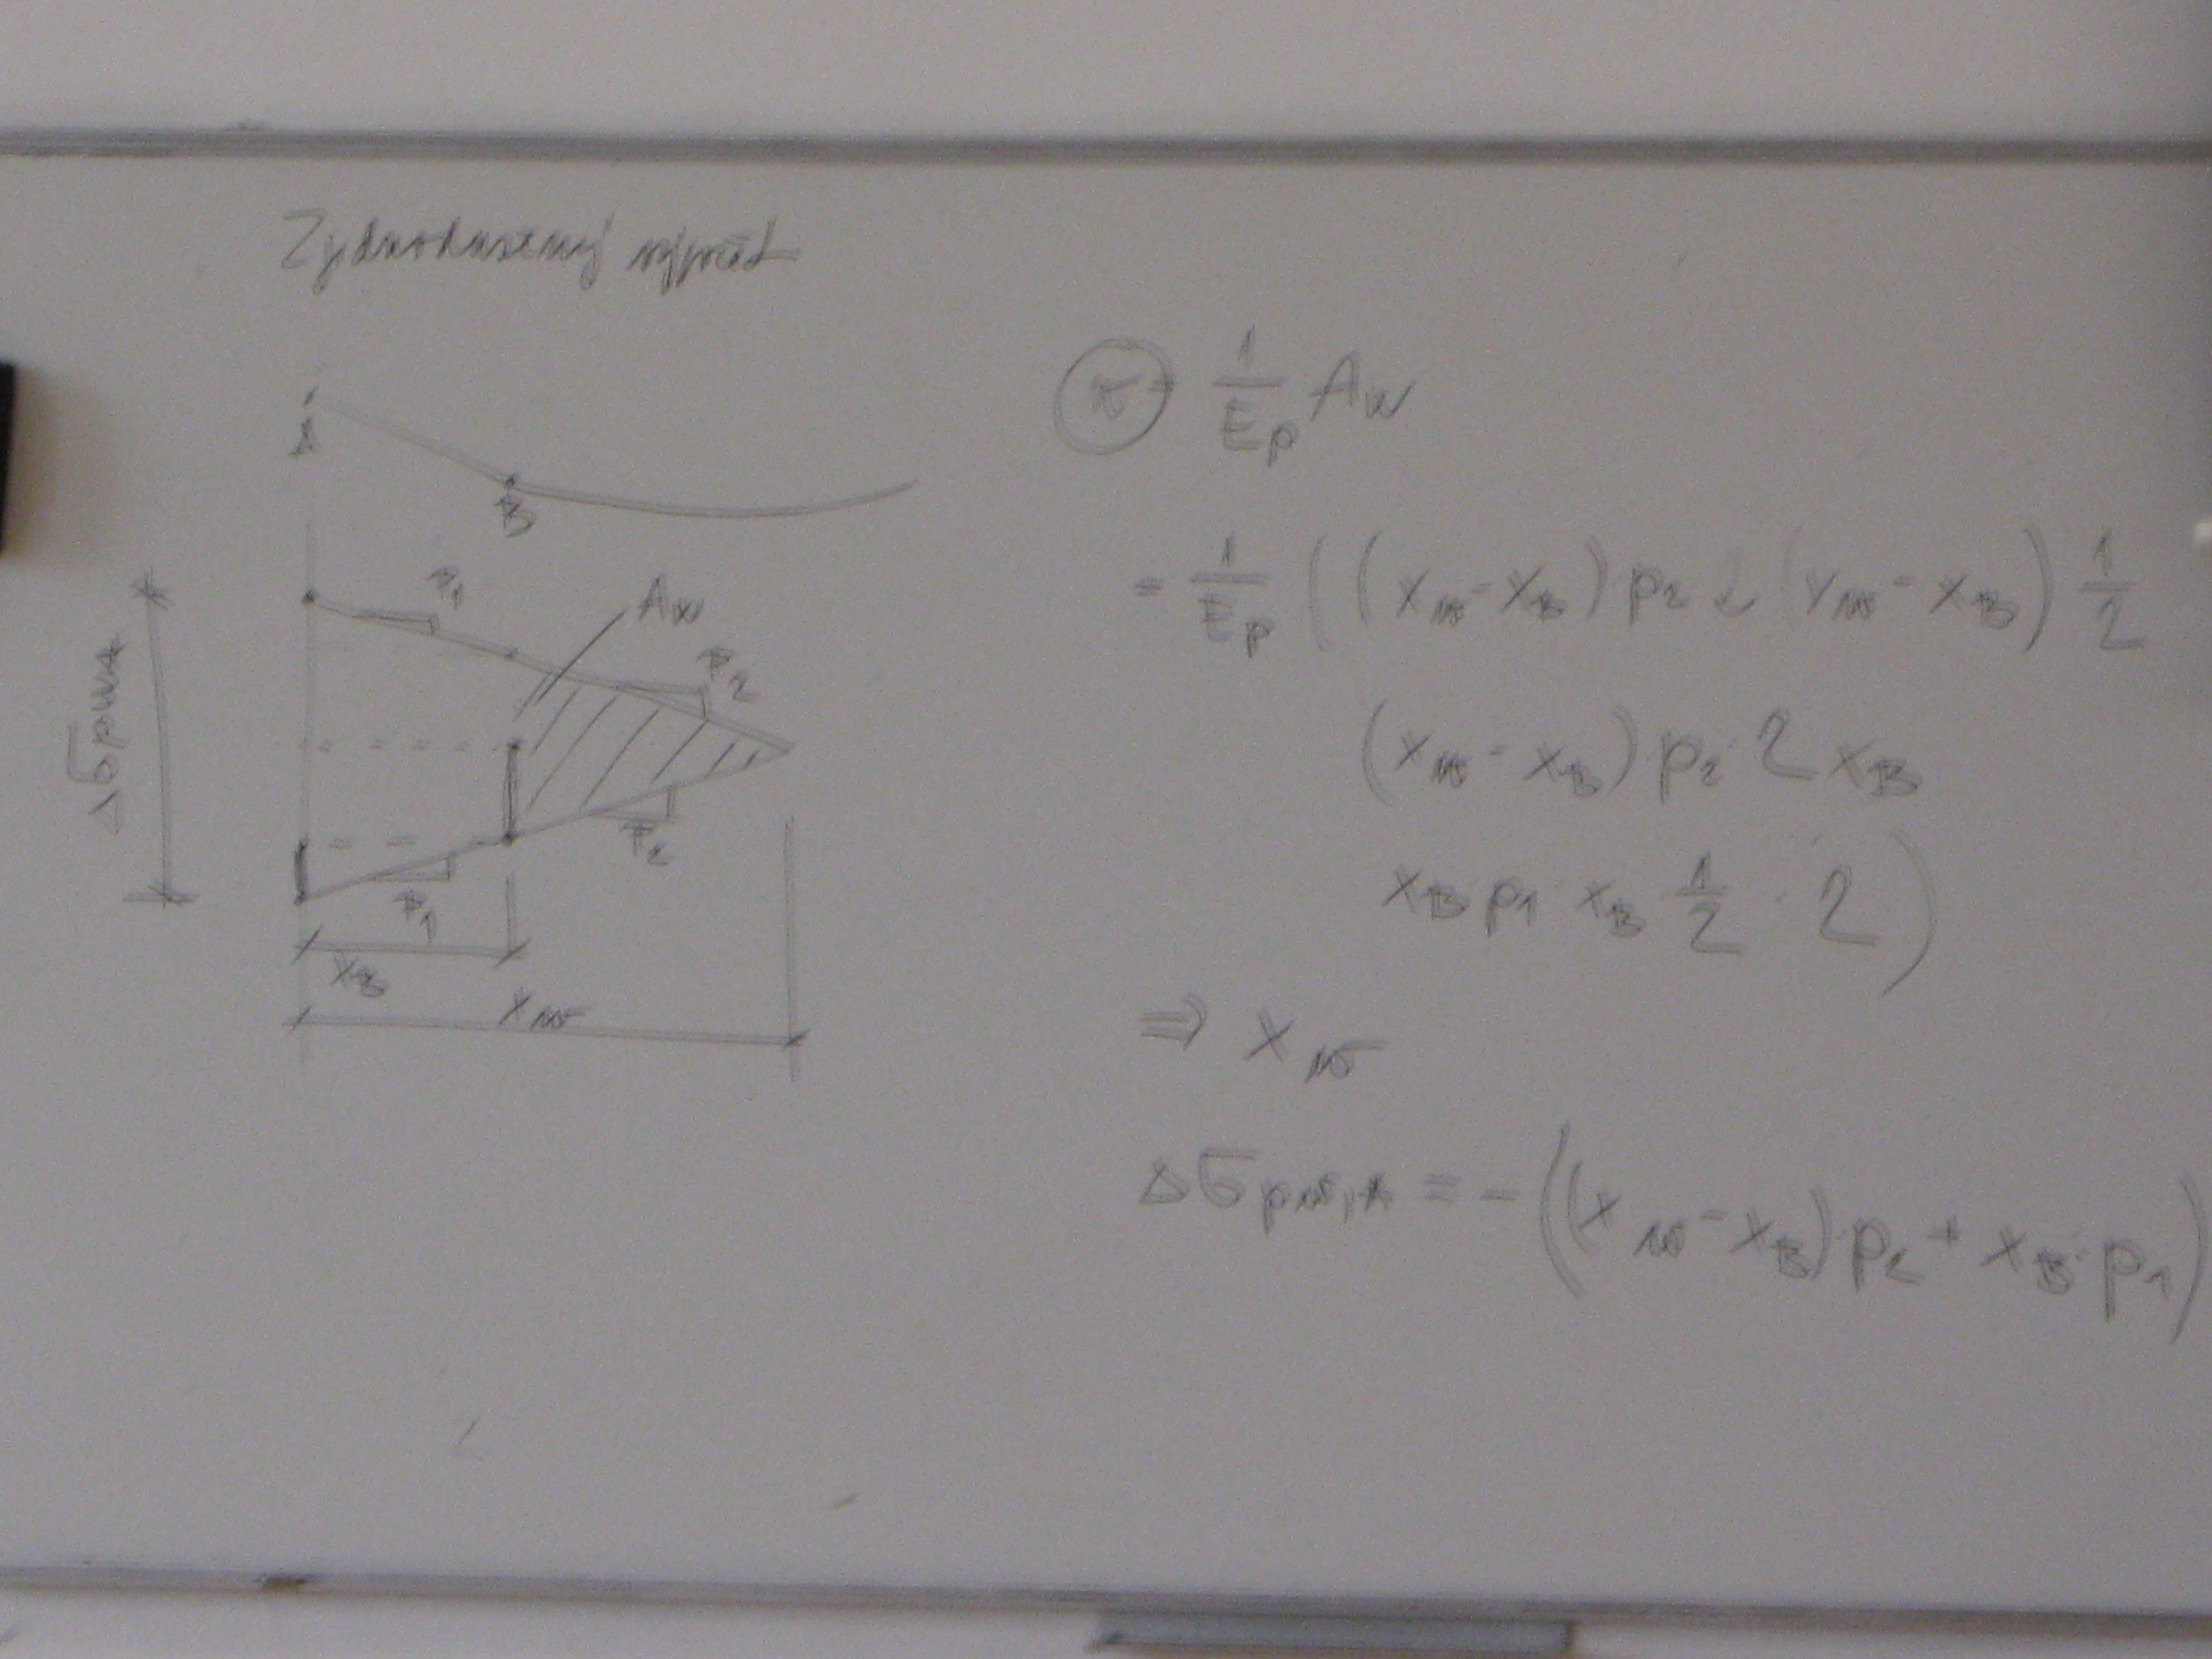 Zjednodušený výpočet
A
B
p1
Aw
p2
Δσpw,A
p2
p1
xB
xw
w = 1/Ep Aw
= 1/Ep ((xw - xB) p2 2 (xw - xB) 1/2
(xw - xB) p2 · 2 xB
xB p1 xB · 1/2 · 2)
⇒ xw
Δσpw,A = - ((xw - xB) p2 + xB · p1)